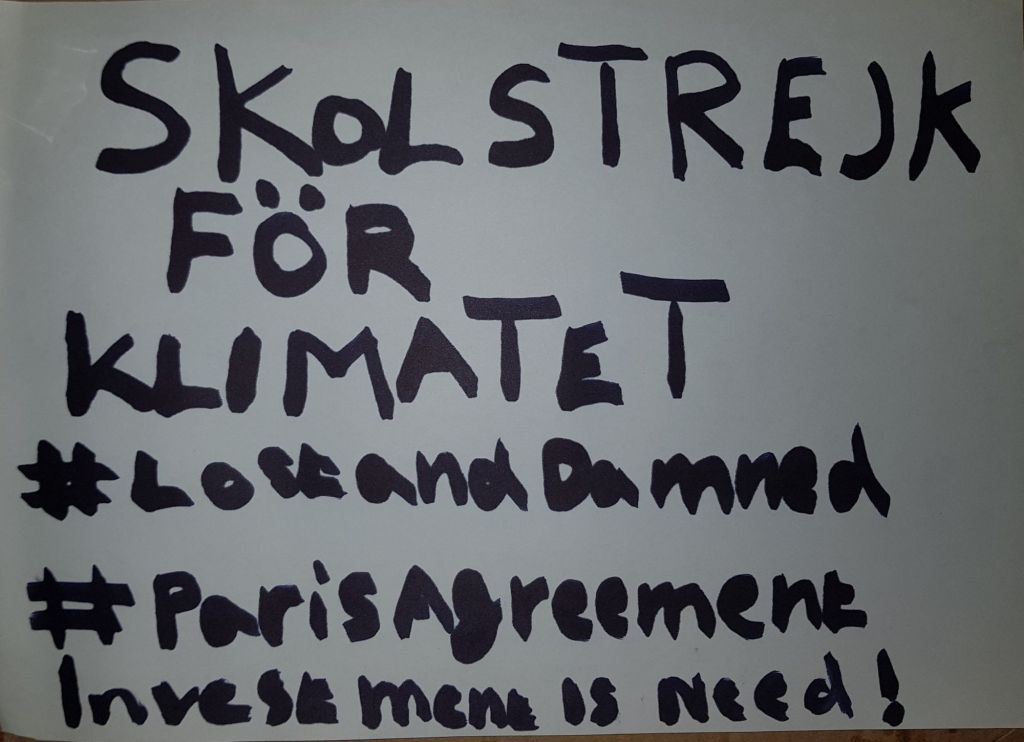 SKOLSTREJK
FÖR
KLIMATET
#LostandDamned
#ParisAgreement
Investment is Need!